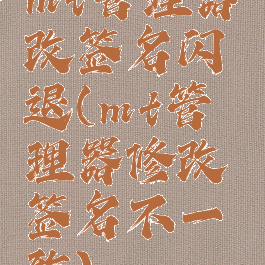 mt管理器
改签名闪
退(mt管
理器修改
签名不一
致)